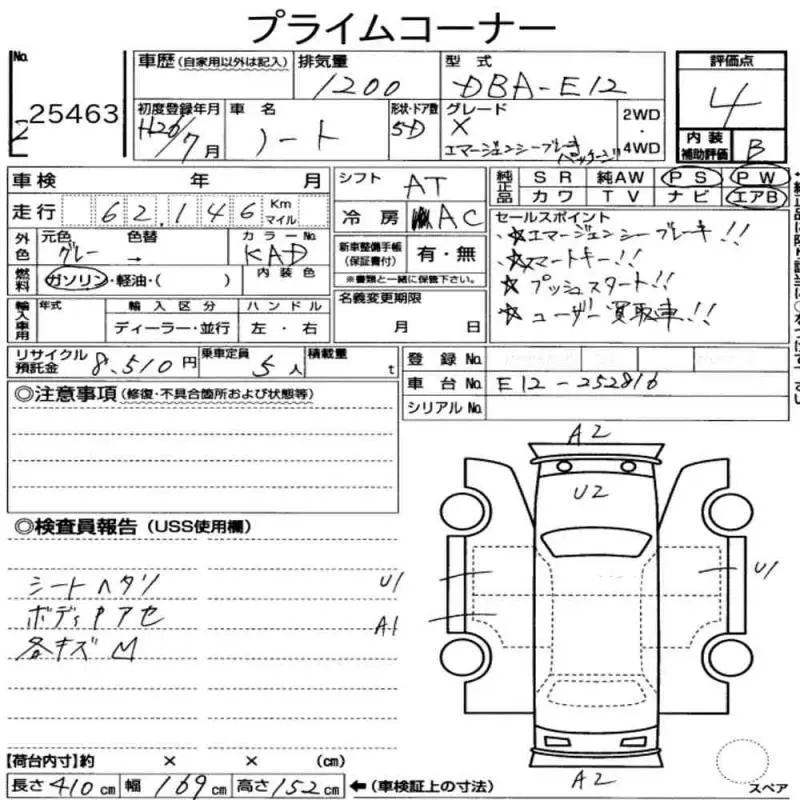 プライムコーナー
No.
25463
車歴 (自家用以外は記入)
排気量
1200
型式
DBA-E12
評価点
4
初度登録年月
H26/7月
車名
ノート
形状・ドア数
5D
グレード
X
エマージェンシーブレーキ
パッケージ
2WD
・
4WD
内装
補助評価
B
車検 年 月
走行 62,146 Km
マイル
外色
元色
グレー
色替
→
カラーNo.
KAD
燃料
ガソリン・軽油・( )
内装色
輸入車用
年式
輸入区分
ディーラー・並行
ハンドル
左・右
シフト
AT
冷房
AC
新車整備手帳
(保証書付)
有・無
※書類と一緒に保管下さい。
名義変更期限
月 日
純正品
SR 純AW PS PW
カワ TV ナビ エアB
セールスポイント
☆エマージェンシーブレーキ!!
☆スマートキー!!
☆プッシュスタート!!
☆ユーザー買取車!!
リサイクル
預託金
8,510円
乗車定員
5人
積載量
t
登録No.
車台No.
E12-252816
シリアルNo.
◎注意事項 (修復・不具合箇所および状態等)
◎検査員報告 (USS使用欄)
シートヘタリ
ボディ
各キズ
A2
U2
U1
U1
A1
A2
スペア
【荷台内寸】約 × × (cm)
長さ 410cm 幅 169cm 高さ 152cm ←(車検証上の寸法)